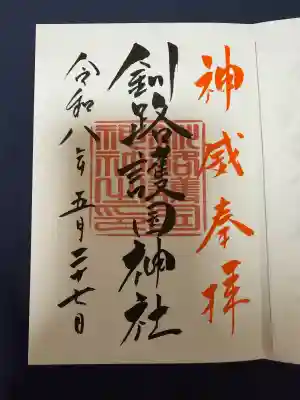 神威奉拝
釧路護国神社
令和八年五月二十七日